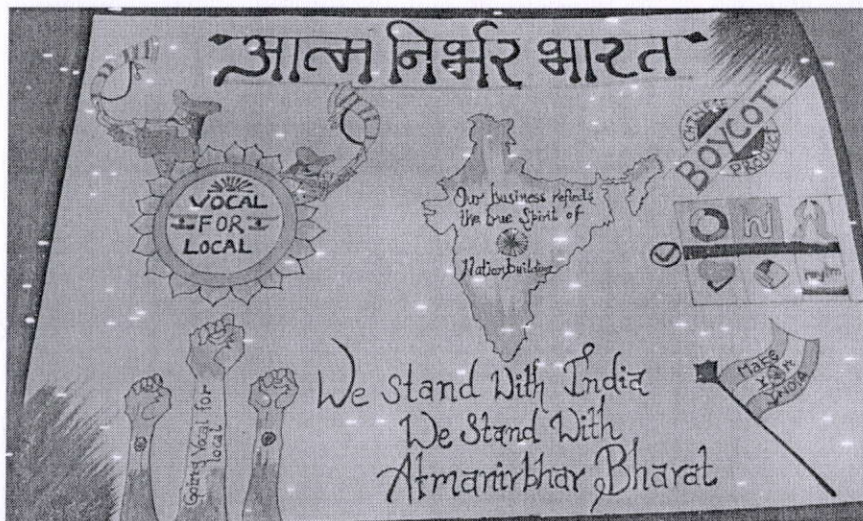 आत्म निर्भर भारत
VOCAL
FOR
LOCAL
Our business reflects
the true Spirit of
Nationbuilding
CHINESE
BOYCOTT
PRODUCT
Going Vocal for
local
We stand With India
We Stand With
Atmanirbhar Bharat
Make
INDIA